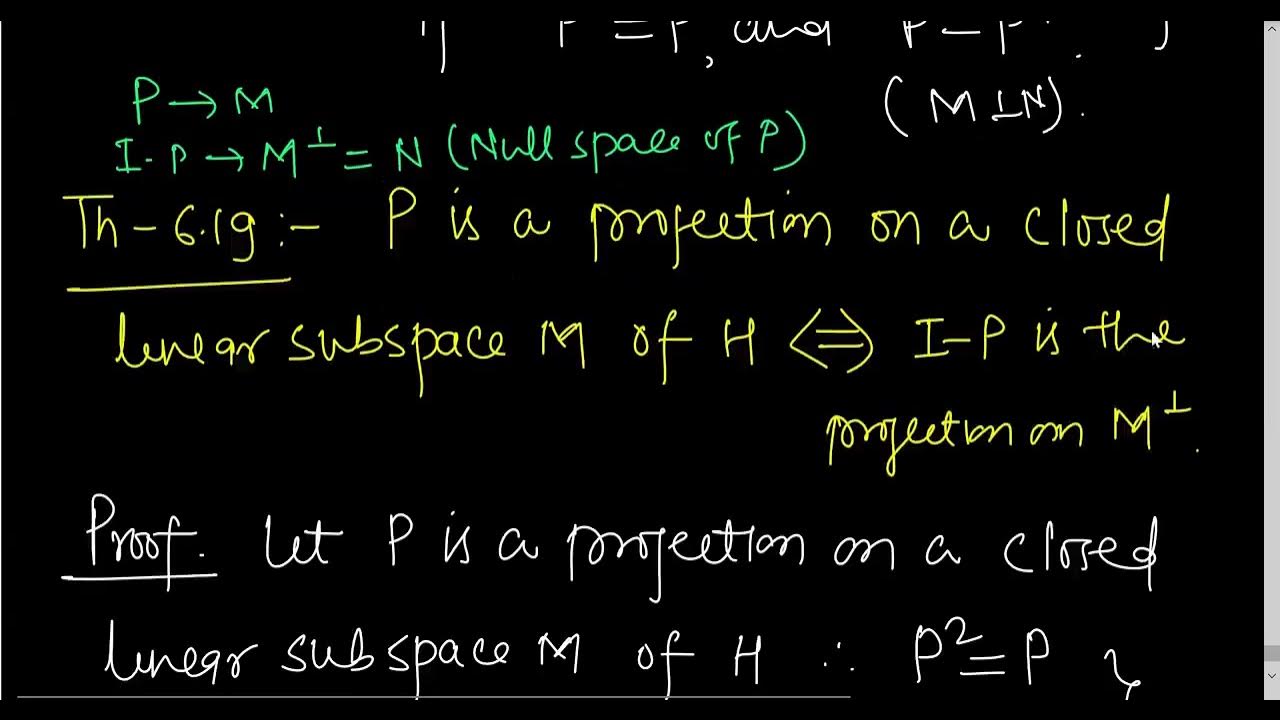 P = P, and P = P*. }
(M ⊥ N).
P → M
I - P → M⊥ = N (Null space of P)
Th - 6.19 :- P is a projection on a closed
linear subspace M of H ⇔ I-P is the
projection on M⊥.
Proof. Let P is a projection on a closed
linear subspace M of H ∴ P² = P